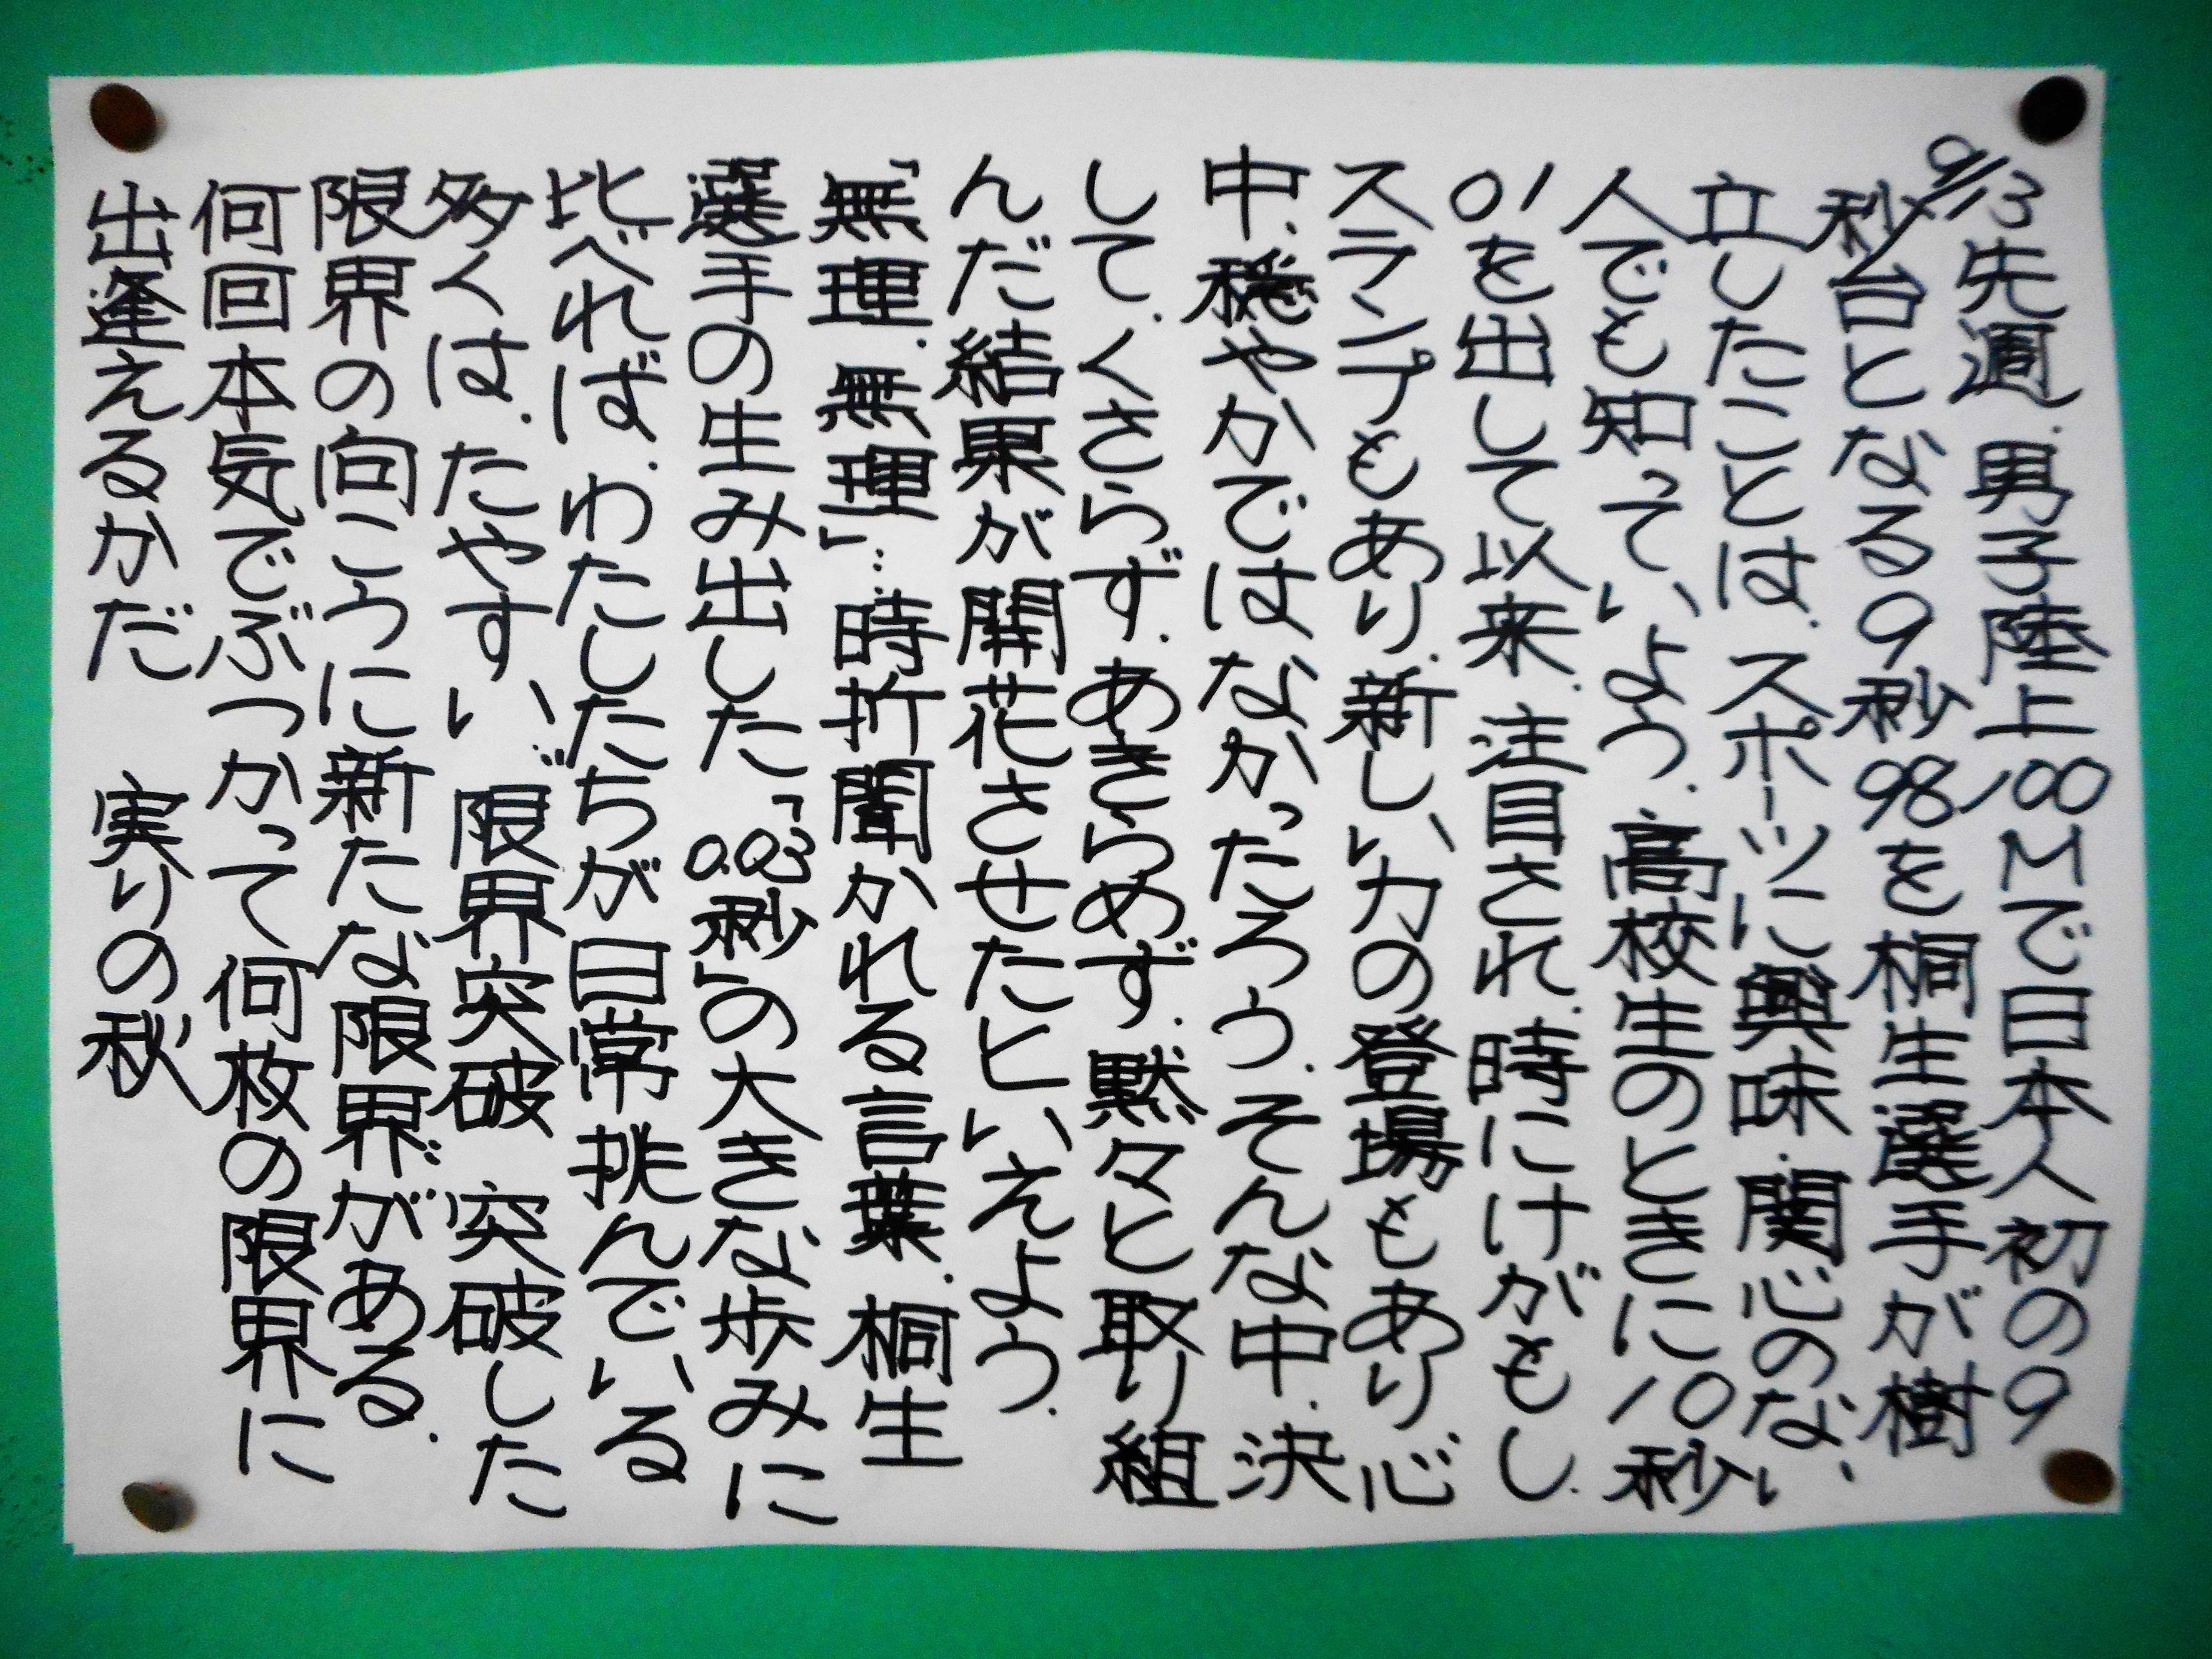 9/13 先週、男子陸上100Mで日本人初の9
秒台となる9秒98を桐生選手が樹
立したことは、スポーツに興味・関心のない
人でも知っていよう。高校生のときに10秒
01を出して以来、注目され、時にけがもし、
スランプもあり、新しい力の登場もあり心
中、穏やかではなかったろう。そんな中、決
して、くさらず、あきらめず、黙々と取り組
んだ結果が開花させたといえよう。
「無理、無理」…時折聞かれる言葉、桐生
選手の生み出した「0.03秒」の大きな歩みに
比べれば、わたしたちが日常挑んでいる
多くは、たやすい…限界突破 突破した
限界の向こうに新たな限界がある。
何回本気でぶつかって何枚の限界に
出逢えるかだ 実りの秋